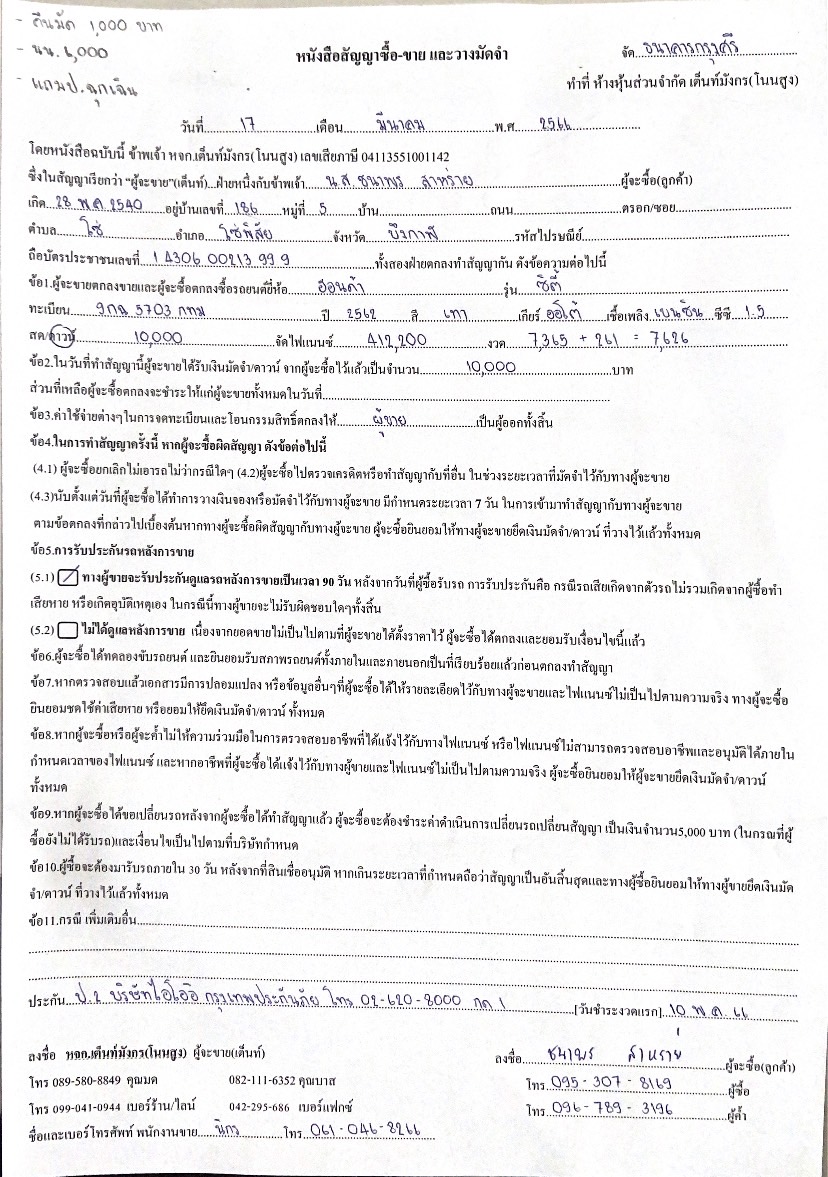 - คืนมัด 1,000 บาท
- นน. 6,000
- แถมป.ฉุกเฉิน
หนังสือสัญญาซื้อ-ขาย และวางมัดจำ
จัด ธนาคารกรุงศรี
ทำที่ ห้างหุ้นส่วนจำกัด เต็นท์มังกร(โนนสูง)
วันที่ 17 เดือน มีนาคม พ.ศ. 2566
โดยหนังสือฉบับนี้ ข้าพเจ้า หจก.เต็นท์มังกร(โนนสูง) เลขเสียภาษี 04113551001142
ซึ่งในสัญญาเรียกว่า "ผู้จะขาย"(เต็นท์)...ฝ่ายหนึ่งกับข้าพเจ้า น.ส. ธนาพร สาหร่าย ผู้จะซื้อ(ลูกค้า)
เกิด 28 พ.ค. 2540 อยู่บ้านเลขที่ 186 หมู่ที่ 5 บ้าน ถนน ตรอก/ซอย
ตำบล โซ่ อำเภอ โซ่พิสัย จังหวัด บึงกาฬ รหัสไปรษณีย์
ถือบัตรประชาชนเลขที่ 1 4306 00213 99 9 ทั้งสองฝ่ายตกลงทำสัญญากัน ดังข้อความต่อไปนี้
ข้อ1.ผู้จะขายตกลงขายและผู้จะซื้อตกลงซื้อรถยนต์ยี่ห้อ ฮอนด้า รุ่น ซิตี้
ทะเบียน 9กฉ 5703 กทม ปี 2562 สี เทา เกียร์ ออโต้ เชื้อเพลิง เบนซิน ซีซี 1.5
สด/ดาวน์ 10,000 จัดไฟแนนซ์ 412,200 งวด 7,365 + 261 = 7,626
ข้อ2.ในวันที่ทำสัญญานี้ผู้จะขายได้รับเงินมัดจำ/ดาวน์ จากผู้จะซื้อไว้แล้วเป็นจำนวน 10,000 บาท
ส่วนที่เหลือผู้จะซื้อตกลงจะชำระให้แก่ผู้จะขายทั้งหมดในวันที่
ข้อ3.ค่าใช้จ่ายต่างๆในการจดทะเบียนและโอนกรรมสิทธิ์ตกลงให้ ผู้ขาย เป็นผู้ออกทั้งสิ้น
ข้อ4.ในการทำสัญญาครั้งนี้ หากผู้จะซื้อผิดสัญญา ดังข้อต่อไปนี้
(4.1) ผู้จะซื้อยกเลิกไม่เอารถไม่ว่ากรณีใดๆ (4.2)ผู้จะซื้อไปตรวจเครดิตหรือทำสัญญากับที่อื่น ในช่วงระยะเวลาที่มัดจำไว้กับทางผู้จะขาย
(4.3)นับตั้งแต่วันที่ผู้จะซื้อได้ทำการวางเงินจองหรือมัดจำไว้กับทางผู้จะขาย มีกำหนดระยะเวลา 7 วัน ในการเข้ามาทำสัญญากับทางผู้จะขาย
ตามข้อตกลงที่กล่าวไปเบื้องต้นหากทางผู้จะซื้อผิดสัญญากับทางผู้จะขาย ผู้จะซื้อยินยอมให้ทางผู้จะขายยึดเงินมัดจำ/ดาวน์ ที่วางไว้แล้วทั้งหมด
ข้อ5.การรับประกันรถหลังการขาย
(5.1) ทางผู้ขายจะรับประกันดูแลรถหลังการขายเป็นเวลา 90 วัน หลังจากวันที่ผู้ซื้อรับรถ การรับประกันคือ กรณีรถเสียเกิดจากตัวรถไม่รวมเกิดจากผู้ซื้อทำ
เสียหาย หรือเกิดอุบัติเหตุเอง ในกรณีนี้ทางผู้ขายจะไม่รับผิดชอบใดๆทั้งสิ้น
(5.2) ไม่ได้ดูแลหลังการขาย เนื่องจากยอดขายไม่เป็นไปตามที่ผู้จะขายได้ตั้งราคาไว้ ผู้จะซื้อได้ตกลงและยอมรับเงื่อนไขนี้แล้ว
ข้อ6.ผู้จะซื้อได้ทดลองขับรถยนต์ และยินยอมรับสภาพรถยนต์ทั้งภายในและภายนอกเป็นที่เรียบร้อยแล้วก่อนตกลงทำสัญญา
ข้อ7.หากตรวจสอบแล้วเอกสารมีการปลอมแปลง หรือข้อมูลอื่นๆที่ผู้จะซื้อได้ให้รายละเอียดไว้กับทางผู้จะขายและไฟแนนซ์ไม่เป็นไปตามความจริง ทางผู้จะซื้อ
ยินยอมชดใช้ค่าเสียหาย หรือยอมให้ยึดเงินมัดจำ/ดาวน์ ทั้งหมด
ข้อ8.หากผู้จะซื้อหรือผู้จะค้ำไม่ให้ความร่วมมือในการตรวจสอบอาชีพที่ได้แจ้งไว้กับทางไฟแนนซ์ หรือไฟแนนซ์ไม่สามารถตรวจสอบอาชีพและอนุมัติได้ภายใน
กำหนดเวลาของไฟแนนซ์ และหากอาชีพที่ผู้จะซื้อได้แจ้งไว้กับทางผู้ขายและไฟแนนซ์ไม่เป็นไปตามความจริง ผู้จะซื้อยินยอมให้ผู้จะขายยึดเงินมัดจำ/ดาวน์
ทั้งหมด
ข้อ9.หากผู้จะซื้อได้ขอเปลี่ยนรถหลังจากผู้จะซื้อได้ทำสัญญาแล้ว ผู้จะซื้อจะต้องชำระค่าดำเนินการเปลี่ยนรถเปลี่ยนสัญญา เป็นเงินจำนวน5,000 บาท (ในกรณที่ผู้
ซื้อยังไม่ได้รับรถ)และเงื่อนไขเป็นไปตามที่บริษัทกำหนด
ข้อ10.ผู้ซื้อจะต้องมารับรถภายใน 30 วัน หลังจากที่สินเชื่ออนุมัติ หากเกินระยะเวลาที่กำหนดถือว่าสัญญาเป็นอันสิ้นสุดและทางผู้ซื้อยินยอมให้ทางผู้ขายยึดเงินมัด
จำ/ดาวน์ ที่วางไว้แล้วทั้งหมด
ข้อ11.กรณี เพิ่มเติมอื่น
ประกัน ป.2 บริษัทไอโออิ กรุงเทพประกันภัย โทร 02-620-8000 กด 1 [วันชำระงวดแรก] 10 พ.ค. 66
ลงชื่อ หจก.เต็นท์มังกร(โนนสูง) ผู้จะขาย(เต็นท์) ลงชื่อ ธนาพร สาหร่าย ผู้จะซื้อ(ลูกค้า)
โทร 089-580-8849 คุณมด 082-111-6352 คุณบาส โทร 095-307-8169 ผู้ซื้อ
โทร 099-041-0944 เบอร์ร้าน/ไลน์ 042-295-686 เบอร์แฟกซ์ โทร 096-789-3196 ผู้ค้ำ
ชื่อและเบอร์โทรศัพท์ พนักงานขาย นิกร โทร 061-046-8266